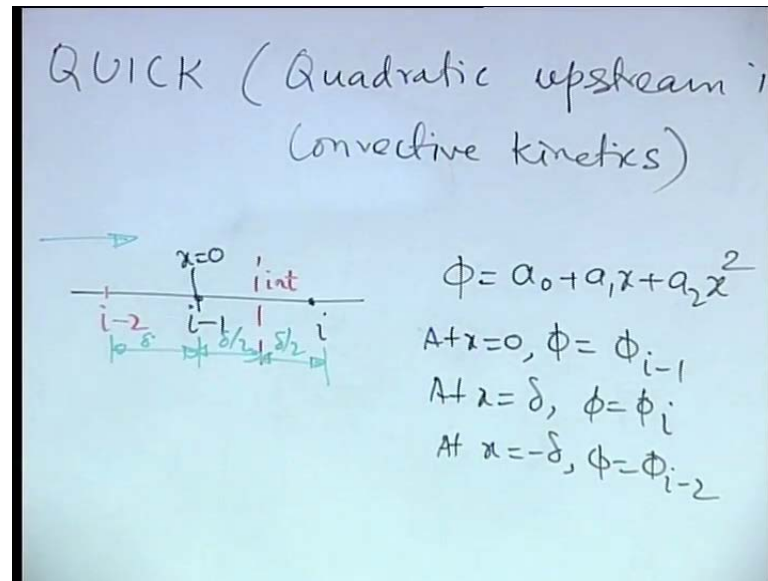 QUICK (Quadratic upstream i
Convective kinetics)
x=0
int
i-2
i-1
i
δ
δ/2
δ/2
ϕ = a₀ + a₁x + a₂x²
At x=0, ϕ = ϕᵢ₋₁
At x = δ, ϕ = ϕᵢ
At x = -δ, ϕ = ϕᵢ₋₂